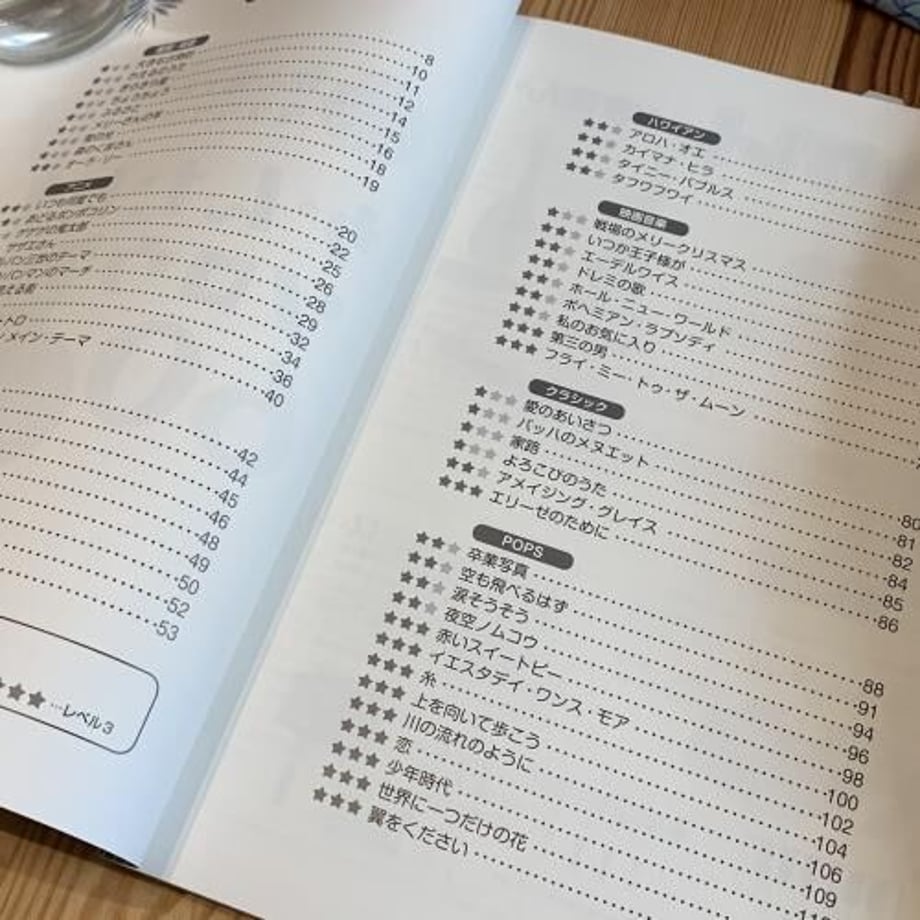 8
10
11
12
14
15
16
18
19
アニメ
いつも何度でも 20
おどるポンポコリン 22
ゲゲゲの鬼太郎 25
サザエさん 26
のテーマ 28
パンマンのマーチ 29
32
トロ 34
メイン・テーマ 36
40
42
44
45
46
48
49
50
52
53
★★★…レベル3
ハワイアン
★★★ アロハ・オエ
★★★ カイマナ・ヒラ
★★★ タイニー・バブルス
★★★ タフワフワイ
映画音楽
★★★ 戦場のメリークリスマス
★★★ いつか王子様が
★★★ エーデルワイス
★★★ ドレミの歌
★★★ ホール・ニュー・ワールド
★★★ ボヘミアン・ラプソディ
★★★ 私のお気に入り
★★★ 第三の男
★★★ フライ・ミー・トゥ・ザ・ムーン
クラシック
★★★ 愛のあいさつ 80
★★★ バッハのメヌエット 81
★★★ 家路 82
★★★ よろこびのうた 84
★★★ アメイジング・グレイス 85
★★★ エリーゼのために 86
POPS
★★★ 卒業写真 88
★★★ 空も飛べるはず 91
★★★ 涙そうそう 94
★★★ 夜空ノムコウ 96
★★★ 赤いスイートピー 98
★★★ イエスタデイ・ワンス・モア 100
★★★ 糸 102
★★★ 上を向いて歩こう 104
★★★ 川の流れのように 106
★★★ 恋 109
★★★ 少年時代
★★★ 世界に一つだけの花
★★★ 翼をください